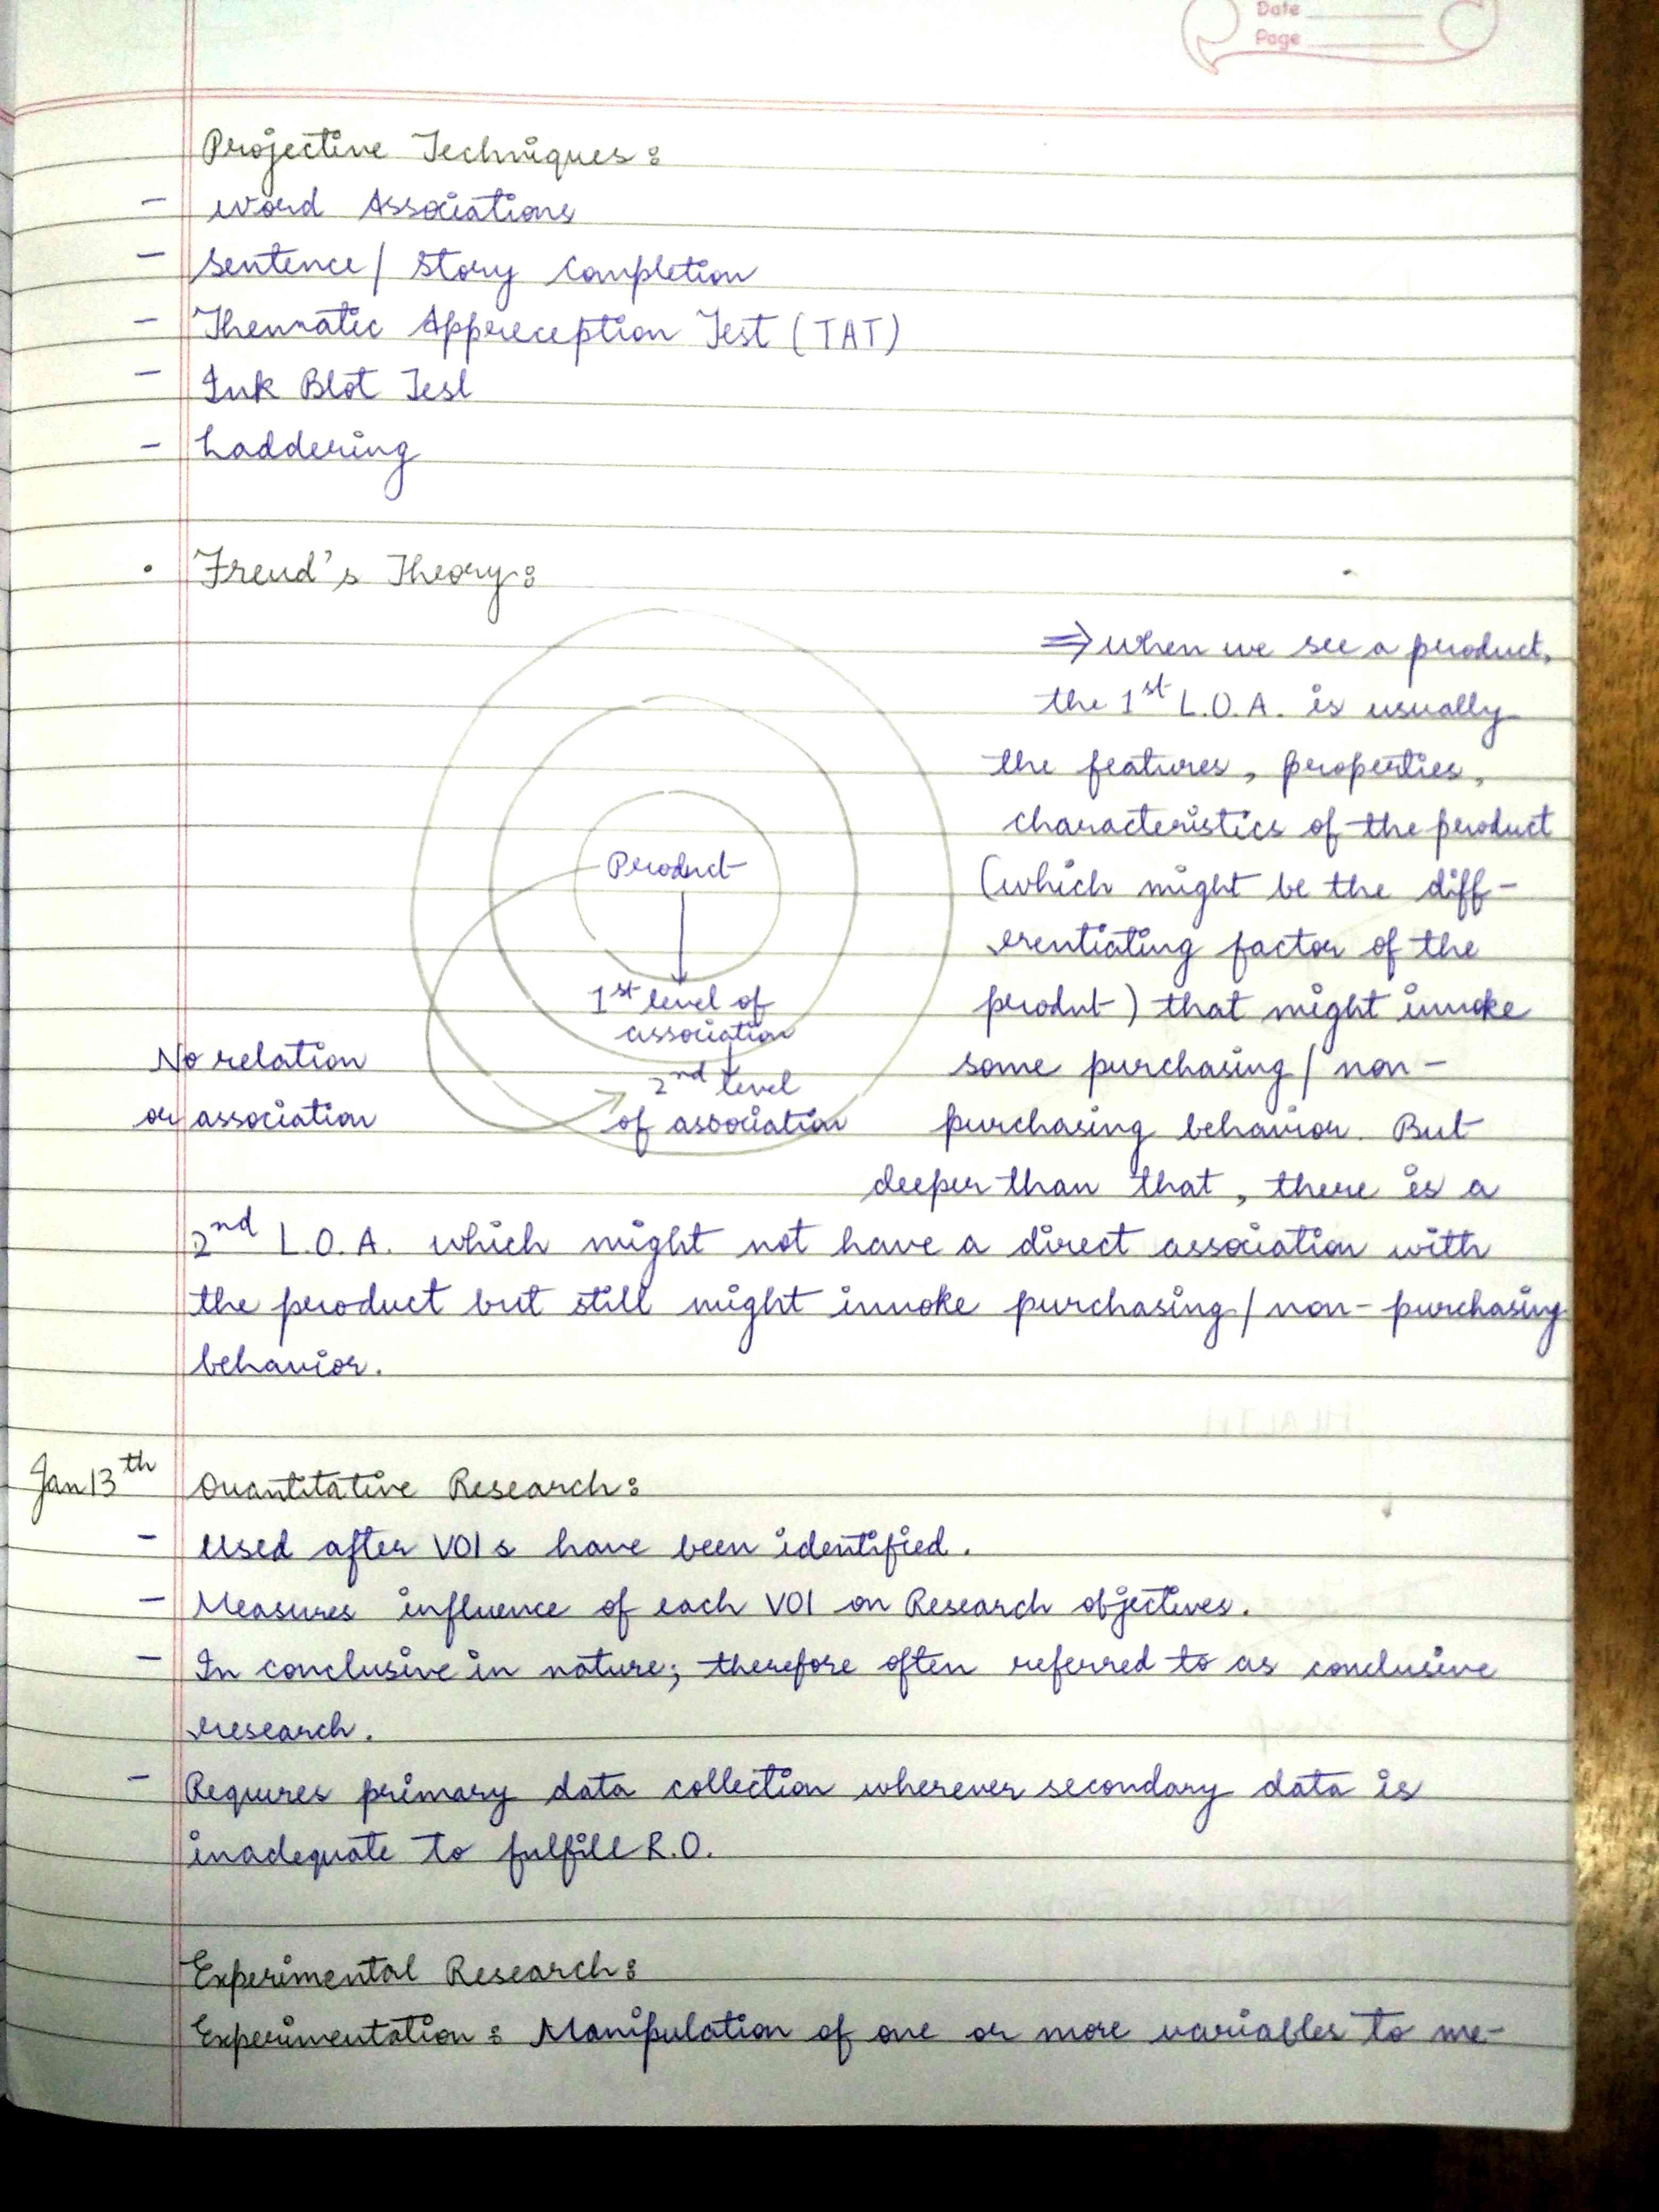 Date
Page
Projective Techniques:
- Word Associations
- Sentence/ Story Completion
- Thematic Appreception Test (TAT)
- Ink Blot Test
- Laddering
• Freud's Theory:
Product
1st level of
association
2nd level
of association
No relation
or association
⇒ when we see a product,
the 1st L.O.A. is usually
the features, properties,
characteristics of the product
(which might be the diff-
erentiating factor of the
produt) that might invoke
some purchasing / non-
purchasing behavior. But
deeper than that, there is a
2nd L.O.A. which might not have a direct association with
the product but still might invoke purchasing / non-purchasing
behavior.
Jan 13th Quantitative Research:
- Used after VOIs have been identified.
- Measures influence of each VOI on Research objectives.
- In conclusive in nature; therefore often referred to as conclusive
research.
- Requires primary data collection wherever secondary data is
inadequate to fulfill R.O.
Experimental Research:
Experimentation: Manipulation of one or more variables to me-